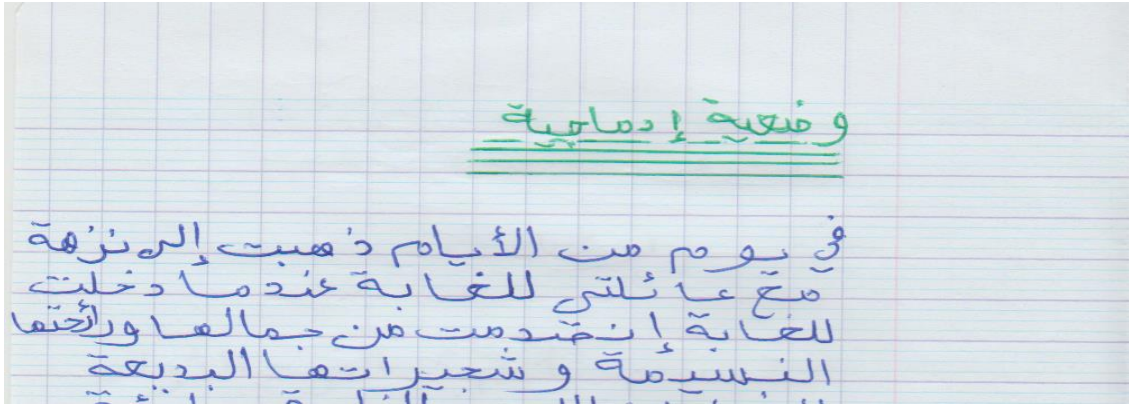 وضعية إدماجية
في يوم من الأيام ذهبت إلى نزهة
مع عائلتي للغابة عندما دخلت
للغابة إنصدمت من جمالها ورائحتها
النسيمة وشجيراتها البديعة